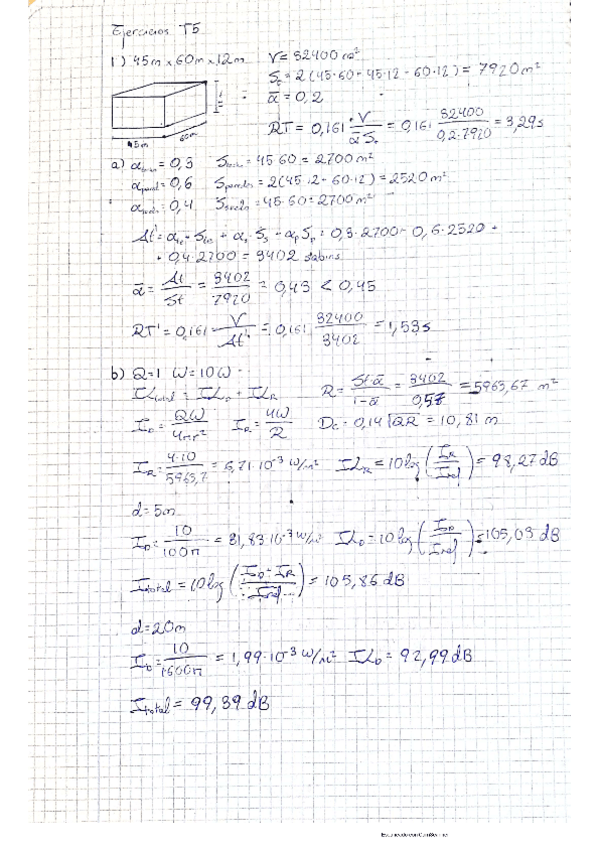 Ejercicios T5
1) 45m x 60m x 12m V = 32400 m²
S₀ = 2(45·60 + 45·12 + 60·12) = 7920 m²
ᾱ = 0,2
RT = 0,161 · V / ᾱ S₀ = 0,161 · 32400 / 0,2·7920 = 3,29s
45m 60m
a) α = 0,3 S = 45·60 = 2700 m²
α pared = 0,6 S paredes = 2(45·12 + 60·12) = 2520 m²
α suelo = 0,4 S suelo = 45·60 = 2700 m²
At' = · S + αs · Ss + αp Sp = 0,3·2700 + 0,6·2520 +
+ 0,4·2700 = 3402 sabins
ᾱ = At / St = 3402 / 7920 = 0,43 < 0,45
RT' = 0,161 V / At' = 0,161 · 32400 / 3402 = 1,53s
b) Q=1 W=10W
IL total = IL D + IL R R = St·ᾱ / 1-ᾱ = 3402 / 0,57 = 5963,67 m²
I D = QW / 4πr² I R = 4W / R Dc = 0,14 √QR = 10,81 m
I R = 4·10 / 5963,7 = 6,71·10⁻³ W/m² IL R = 10 log (I R / I ref) = 98,27 dB
d = 5m
I D = 10 / 100π = 31,83·10⁻³ W/m² IL D = 10 log (I D / I ref) = 105,03 dB
I total = 10 log (I D + I R / I ref) = 105,86 dB
d = 20m
I D = 10 / 1600π = 1,99·10⁻³ W/m² IL D = 92,99 dB
I total = 99,39 dB
Escaneado con CamScanner